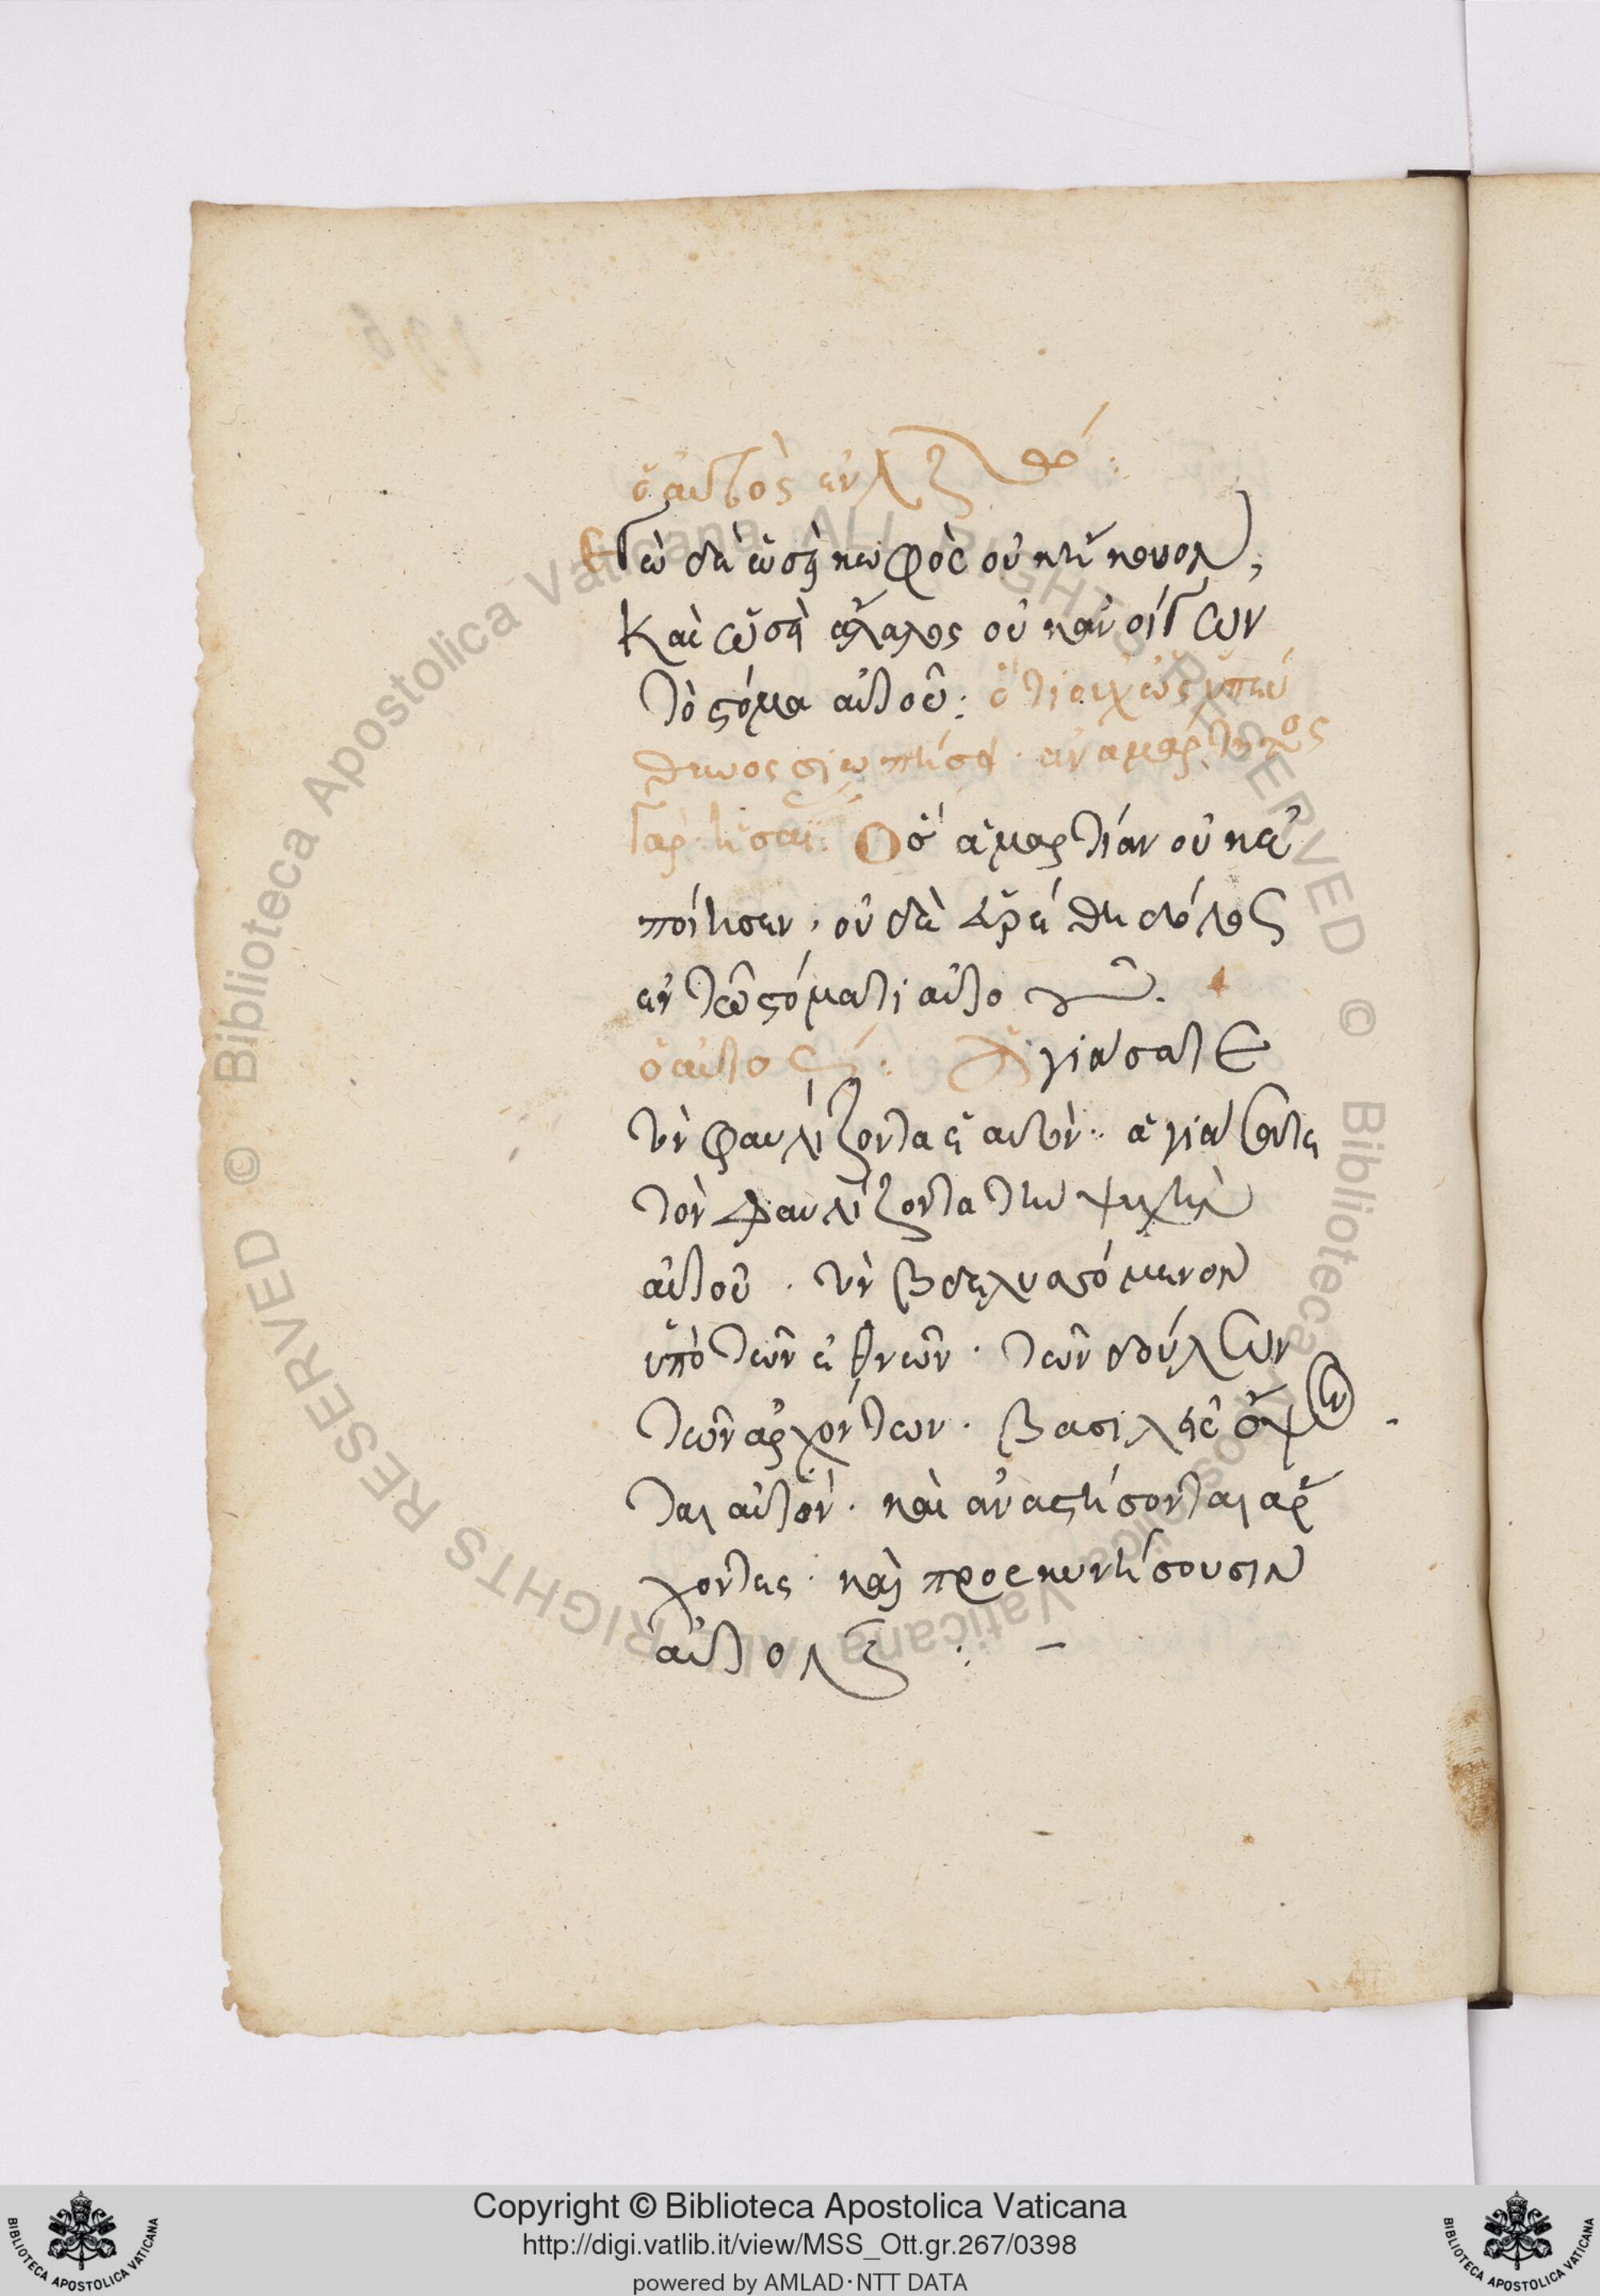 ὁ αὐτὸς ἐν λζ
Ἐγὼ δὲ ὡσεὶ κωφὸς οὐκ ἤκουον,
Καὶ ὡσεὶ ἄλαλος οὐκ ἀνοίγων
τὸ στόμα αὐτοῦ: ὅτι οὐχ ὡς ὑπεύ
θυνος σιωπήσει. ἀναμάρτητος
γὰρ ἦσαι: Ὃς ἁμαρτίαν οὐκ ἐ
ποίησεν, οὐδὲ εὑρέθη δόλος
ἐν τῷ στόματι αὐτοῦ.
ὁ αὐτος: Ἁγιάσατε
τὸν φαυλίζοντα ἑαυτὸν. ἁγιάζετε
τὸν φαυλίζοντα τὴν ψυχὴν
αὐτοῦ. τὸν βδελυσσόμενον
ὑπὸ τῶν ἐθνῶν. τῶν δούλων
τῶν ἀρχόντων. βασιλεῖς ὄψον
ται αὐτόν. καὶ ἀναστήσονται ἄρ
χοντες. καὶ προσκυνήσουσιν
αὐτον:-
Copyright © Biblioteca Apostolica Vaticana
http://digi.vatlib.it/view/MSS_Ott.gr.267/0398
powered by AMLAD·NTT DATA
BIBLIOTECA APOSTOLICA VATICANA
BIBLIOTECA APOSTOLICA VATICANA
© Biblioteca Apostolica Vaticana ALL RIGHTS RESERVED
© Biblioteca Apostolica Vaticana ALL RIGHTS RESERVED